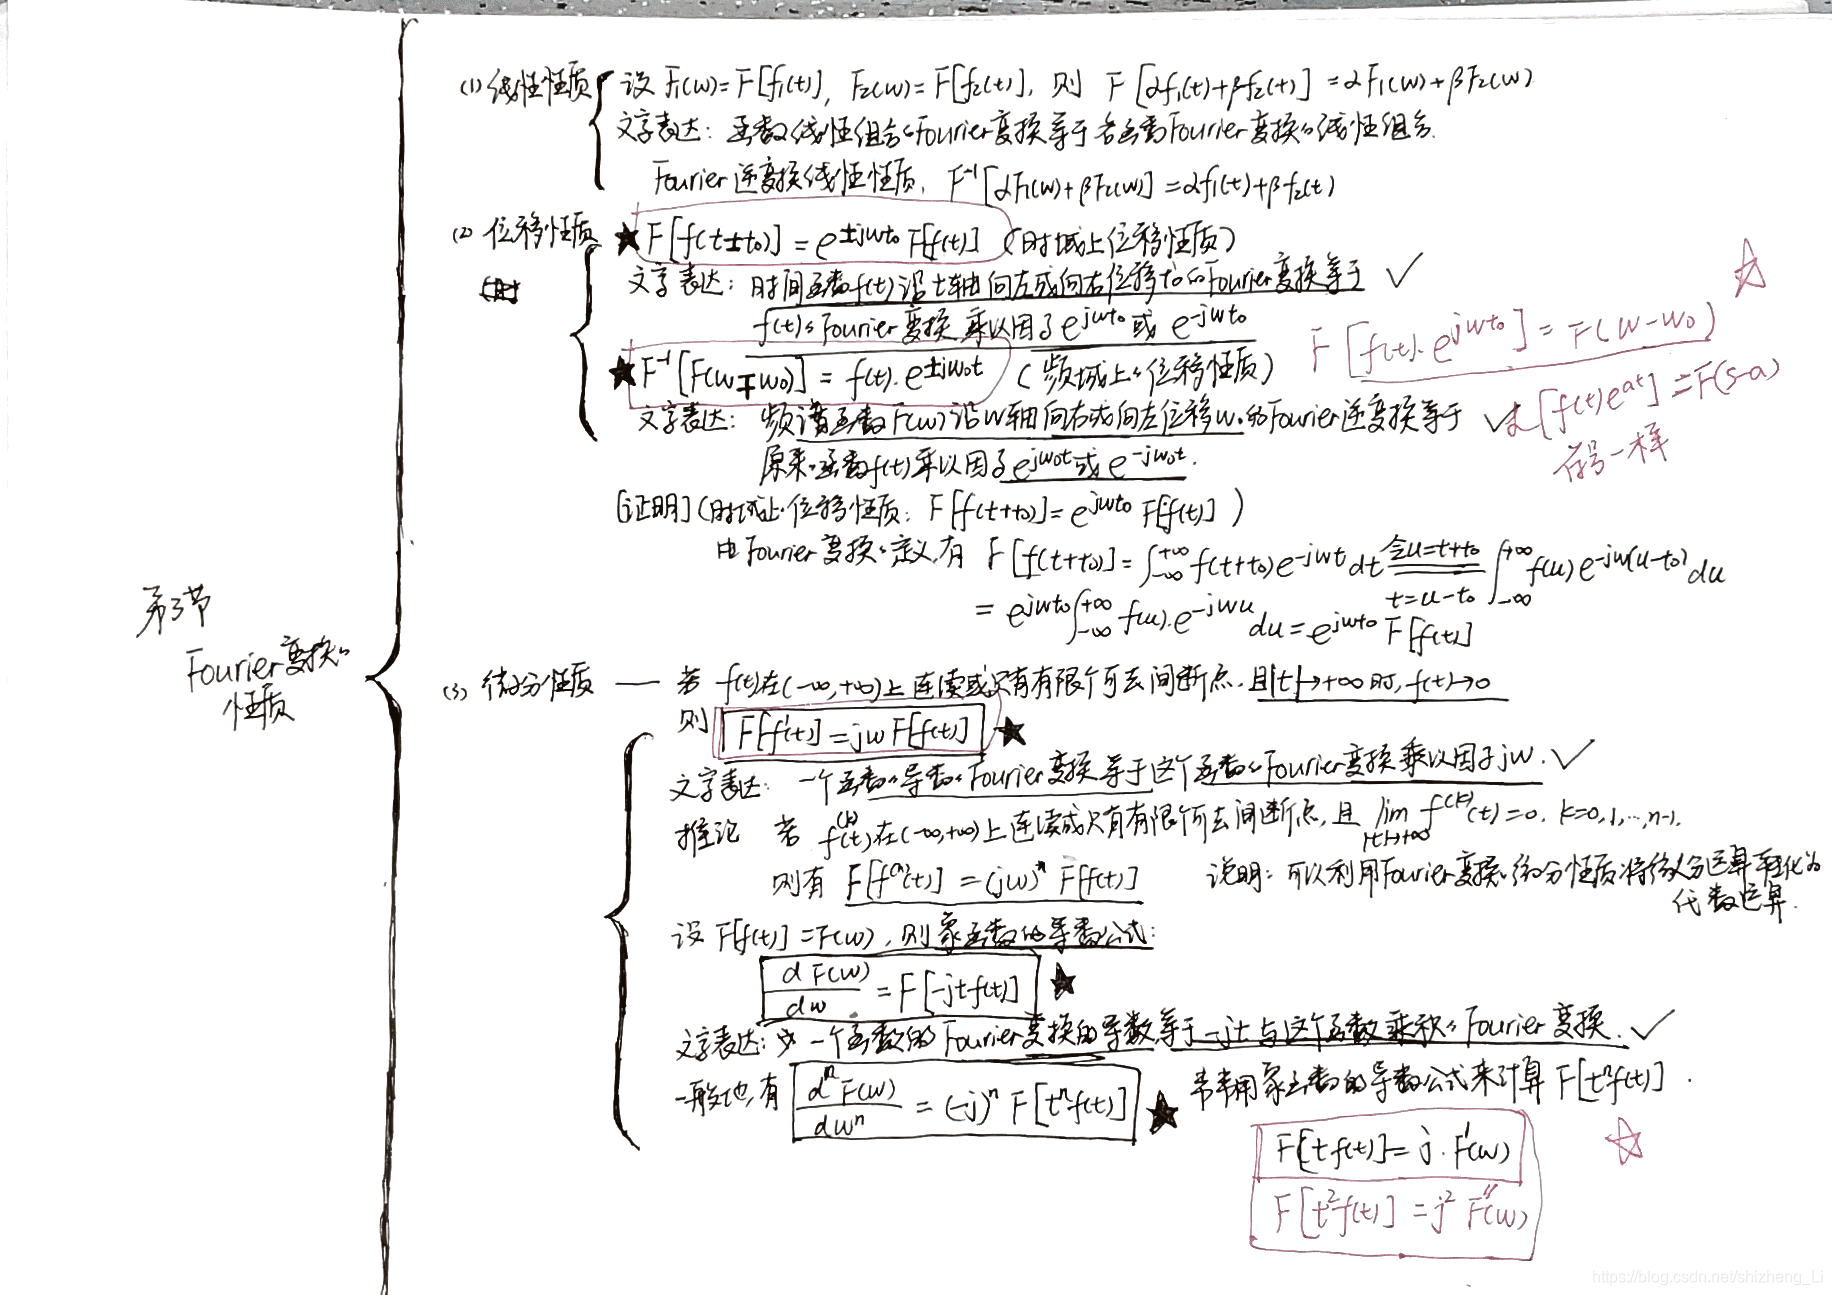 第3节
Fourier变换的
性质
(1) 线性性质
设 F₁(w)=F[f₁(t)], F₂(w)=F[f₂(t)], 则 F[αf₁(t)+βf₂(t)]=αF₁(w)+βF₂(w)
文字表达: 函数线性组合的Fourier变换等于各函数Fourier变换的线性组合.
Fourier逆变换线性性质, F⁻¹[αF₁(w)+βF₂(w)]=αf₁(t)+βf₂(t)
(2) 位移性质
★ F[f(t±t₀)]=e^{±jwt₀} F[f(t)] (时域上位移性质)
文字表达: 时间函数f(t)沿t轴向左或向右位移t₀的Fourier变换等于 ✓
f(t)的Fourier变换乘以因子e^{jwt₀}或 e^{-jwt₀}
★ F⁻¹[F(w∓w₀)]=f(t)·e^{±jw₀t} (频域上的位移性质)
文字表达: 频谱函数F(w)沿w轴向右或向左位移w₀的Fourier逆变换等于 ✓
原来的函数f(t)乘以因子e^{jw₀t}或 e^{-jw₀t}.
☆
F[f(t)·e^{jwt₀}]=F(w-w₀)
[f(t)e^{at}]=F(s-a)
符号一样
[证明](时域上的位移性质: F[f(t+t₀)]=e^{jwt₀} F[f(t)])
由Fourier变换的定义,有 F[f(t+t₀)]=∫_{-∞}^{+∞} f(t+t₀)e^{-jwt}dt 令u=t+t₀ t=u-t₀ ∫_{-∞}^{+∞} f(u)e^{-jw(u-t₀)}du
=e^{jwt₀}∫_{-∞}^{+∞} f(u)·e^{-jwu}du=e^{jwt₀} F[f(t)]
(3) 微分性质 — 若 f(t)在(-∞,+∞)上连续或只有有限个可去间断点,且|t|→+∞时,f(t)→0
则 F[f'(t)]=jwF[f(t)] ★
文字表达: 一个函数的导数的Fourier变换等于这个函数的Fourier变换乘以因子jw. ✓
推论 若 f^{(k)}(t)在(-∞,+∞)上连续或只有有限个可去间断点,且 lim_{|t|→+∞} f^{(k)}(t)=0, k=0,1,…,n-1.
则有 F[f^{(n)}(t)]=(jw)ⁿ F[f(t)]
说明: 可以利用Fourier变换的微分性质将微分运算转化为
代数运算.
设 F[f(t)]=F(w),则象函数的导数公式:
dF(w)/dw = F[-jtf(t)] ★
文字表达: 一个函数的Fourier变换的导数等于-jt与这个函数乘积的Fourier变换. ✓
一般地,有 dⁿF(w)/dwⁿ=(-j)ⁿ F[tⁿf(t)] ★ 常用象函数的导数公式来计算 F[tⁿf(t)].
F[tf(t)]=j·F'(w) ☆
F[t²f(t)]=j² F''(w)
https://blog.csdn.net/shizheng_Li